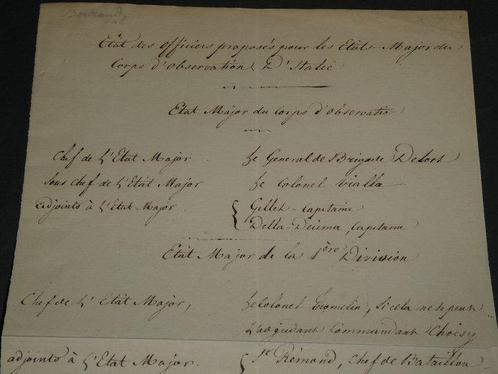 Bertrand
Etat des officiers proposés pour les Etats-Major du
Corps d'Observation D'Italie
Etat Major du Corps d'Observation
Chef de L'Etat Major Le General de Brigade
Sous Chef de L'Etat Major Le Colonel Vialla
adjoints à L'Etat Major { Gillet - Capitaine
Della-Decima Capitaine
Etat Major de la 1ère Division
Chef de L'Etat Major, Le Colonel, si cela ne se peut
L'adjudant Commandant Choisy
adjoints à L'Etat Major. { Rémond, Chef de Bataillon